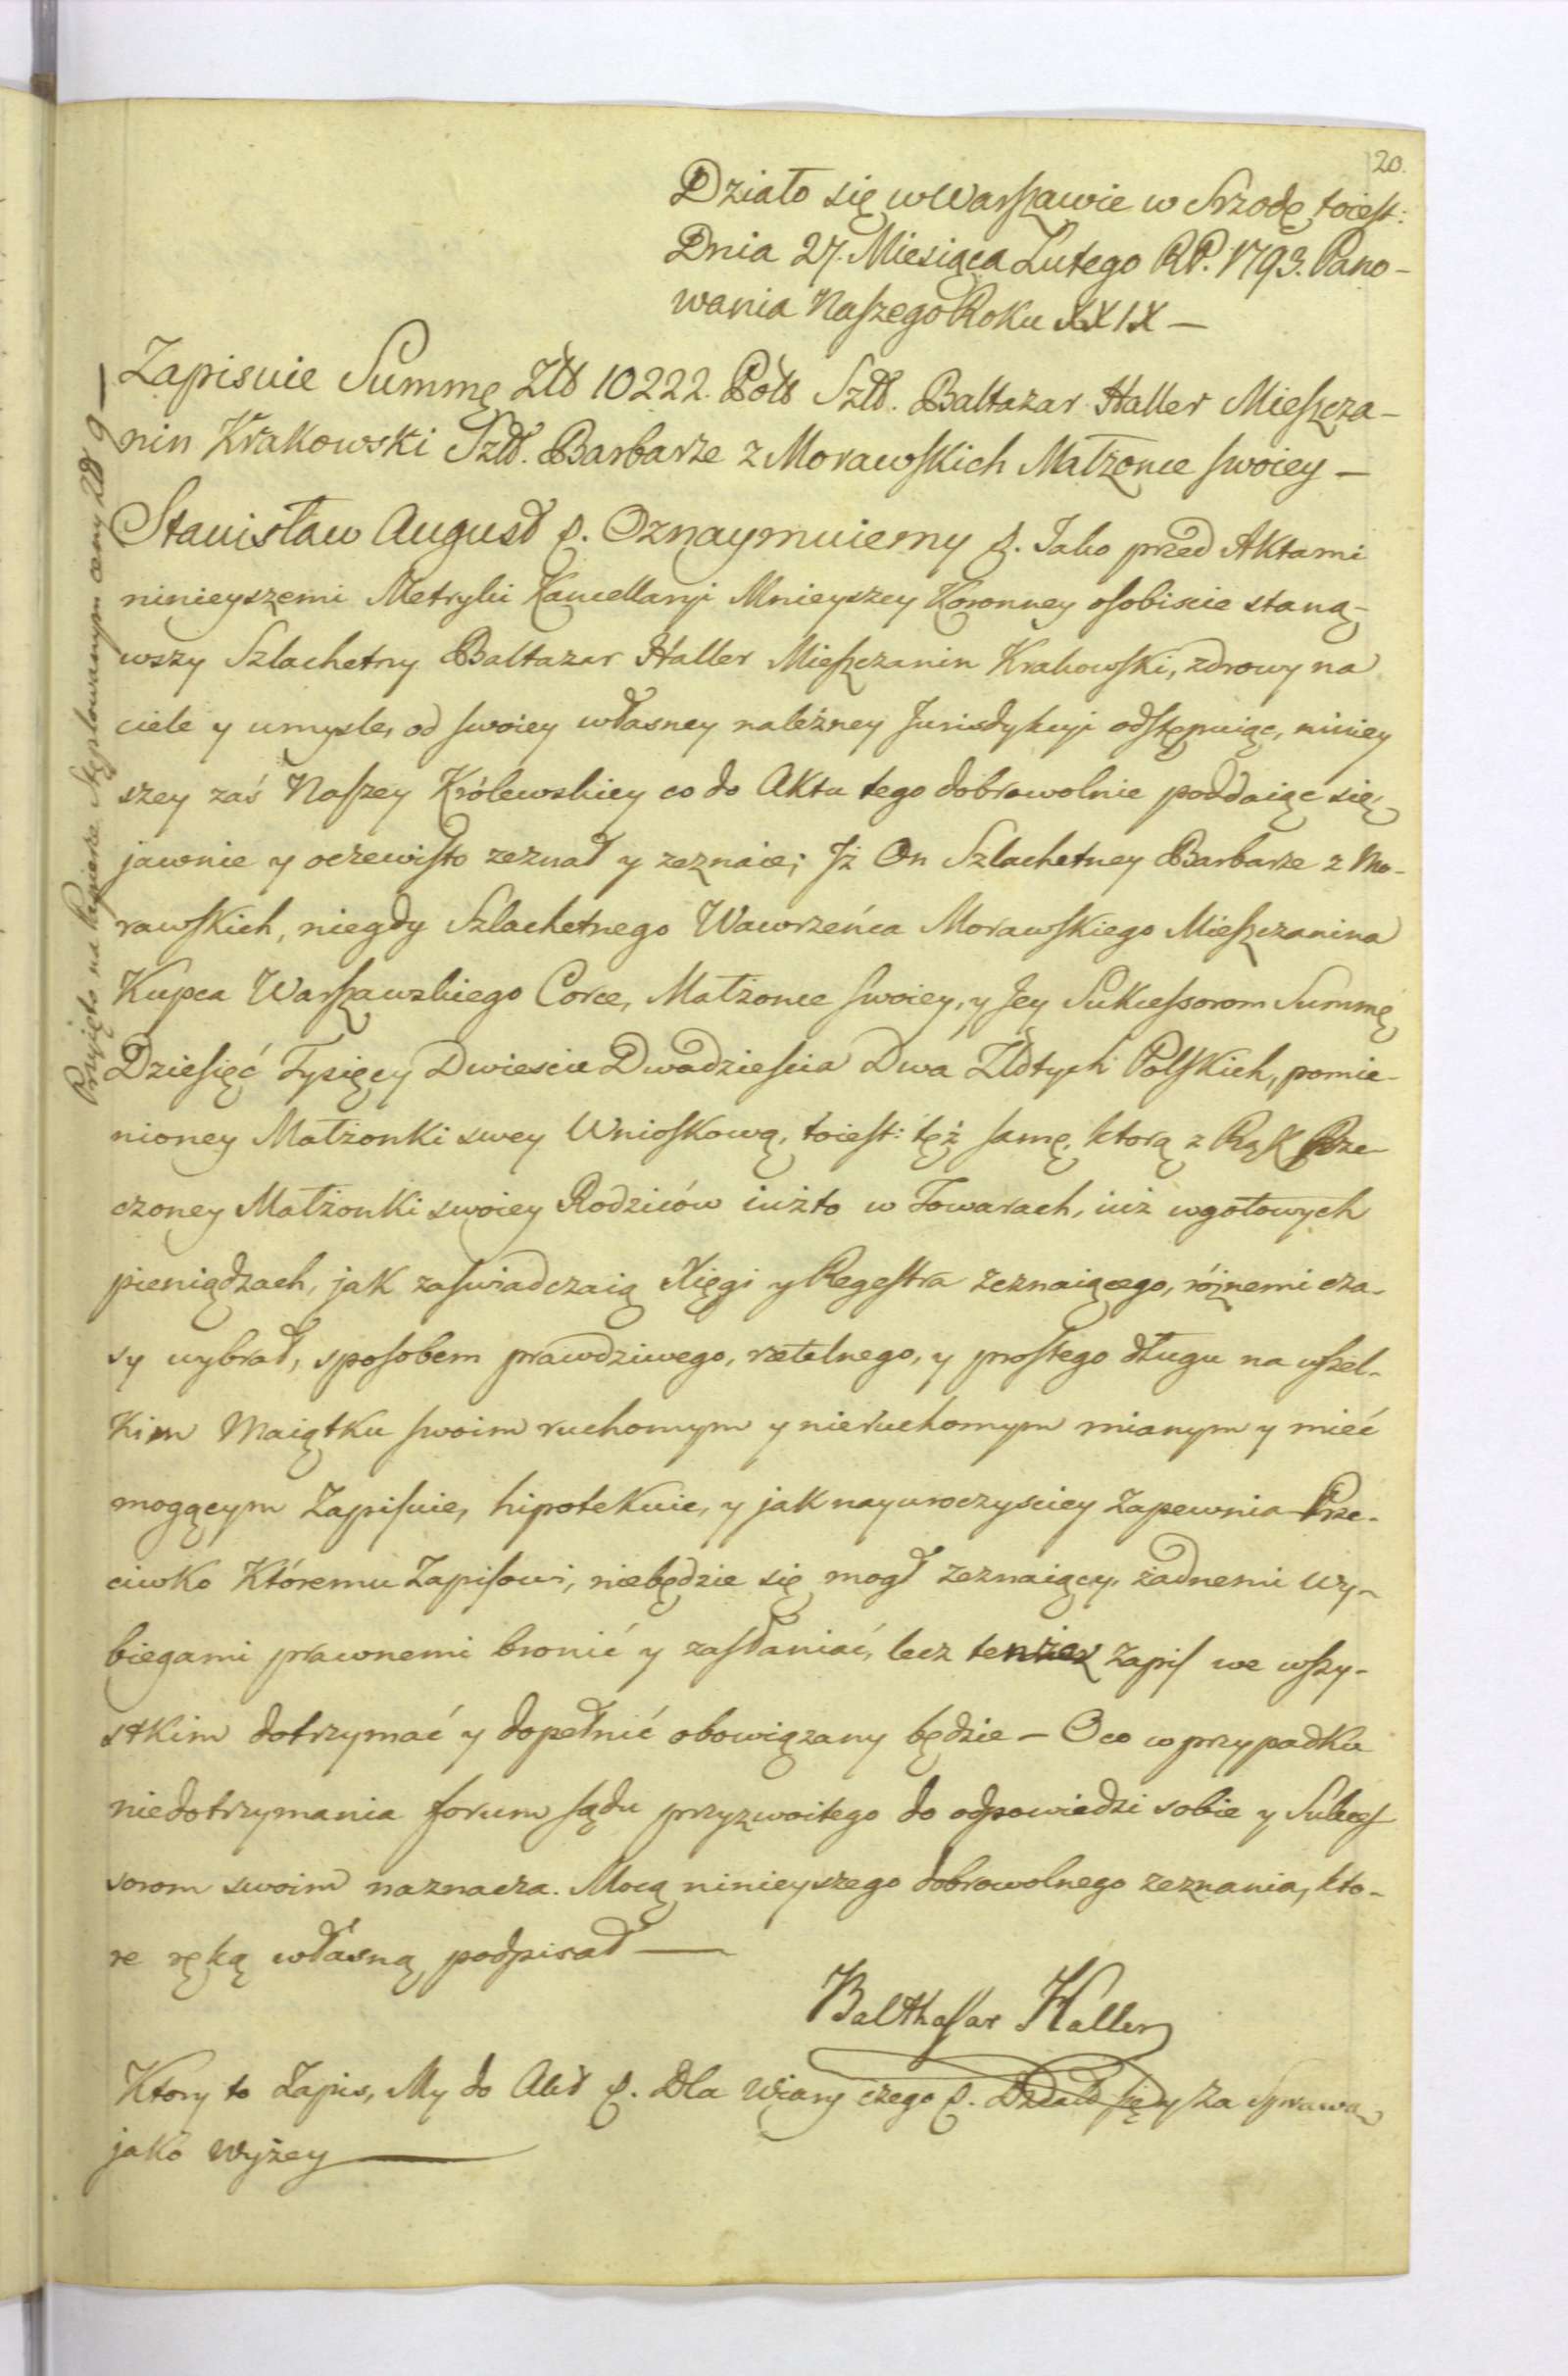 20.
Działo się w Warszawie w Srzodę toiest:
Dnia 27. Miesiąca Lutego RP. 1793. Pano-
wania Naszego Roku XXIX —
Zapisuie Summę Złł 10222. Poł Szl. Baltazar Haller Mieszcza-
nin Krakowski Szl. Barbarze z Morawskich Małżonce swoiey —
Stanisław August &. Oznaymuiemy &. Jako przed Aktami
ninieyszemi Metryki Kancellaryi Mnieyszey Koronney osobiscie staną-
wszy Szlachetny Baltazar Haller Mieszczanin Krakowski, zdrowy na
ciele y umysle, od swoiey własney należney Jurisdykcyi odstępuiąc, niniey
szey zaś Naszey Królewskiey co do Aktu tego dobrowolnie poddaiąc się,
jawnie y oczewisto zeznał y zeznaie; Iż On Szlachetney Barbarze z Mo-
rawskich, niegdy Szlachetnego Wawrzeńca Morawskiego Mieszczanina
Kupca Warszawskiego Corce, Małżonce swoiey, y Jey Sukcessorom Summę
Dziesięć Tysięcy Dwiescie Dwadziescia Dwa Złotych Polskich, pomie-
nioney Małżonki swey Wnioskową, toiest: tęż samę, ktorą z Rąk Rze-
czoney Małżonki swoiey Rodziców iużto w Towarach, iuż w gotowych
pieniądzach, jak zaswiadczaią Xięgi y Regestra zeznaiącego, różnemi cza-
sy wybrał, sposobem prawdziwego, rzetelnego, y prostego długu na wszel-
kim Maiątku swoim ruchomym y nieruchomym mianym y mieć
mogącym Zapisuie, hipotekuie, y jak nayuroczysciey Zapewnia Prze-
ciwko Któremu Zapisowi, niebędzie się mogł zeznaiący, żadnemi wy-
biegami prawnemi bronić y zasłaniać, lecz tenże Zapis we wszy-
stkim dotrzymać y dopełnić obowiązany będzie — O co w przypadku
niedotrzymania forum sądu przyzwoitego do odpowiedzi sobie y Sukces
sorom swoim naznacza. Mocą ninieyszego dobrowolnego zeznania, kto-
re ręką własną podpisał —
Balthasar Haller
Ktory to Zapis, My do Akt &. Dla Wiary czego &. Działo się y za Sprawą
jako wyżey —
Przyjęto na Papierze Stęplowanym ceny Złł 9 —